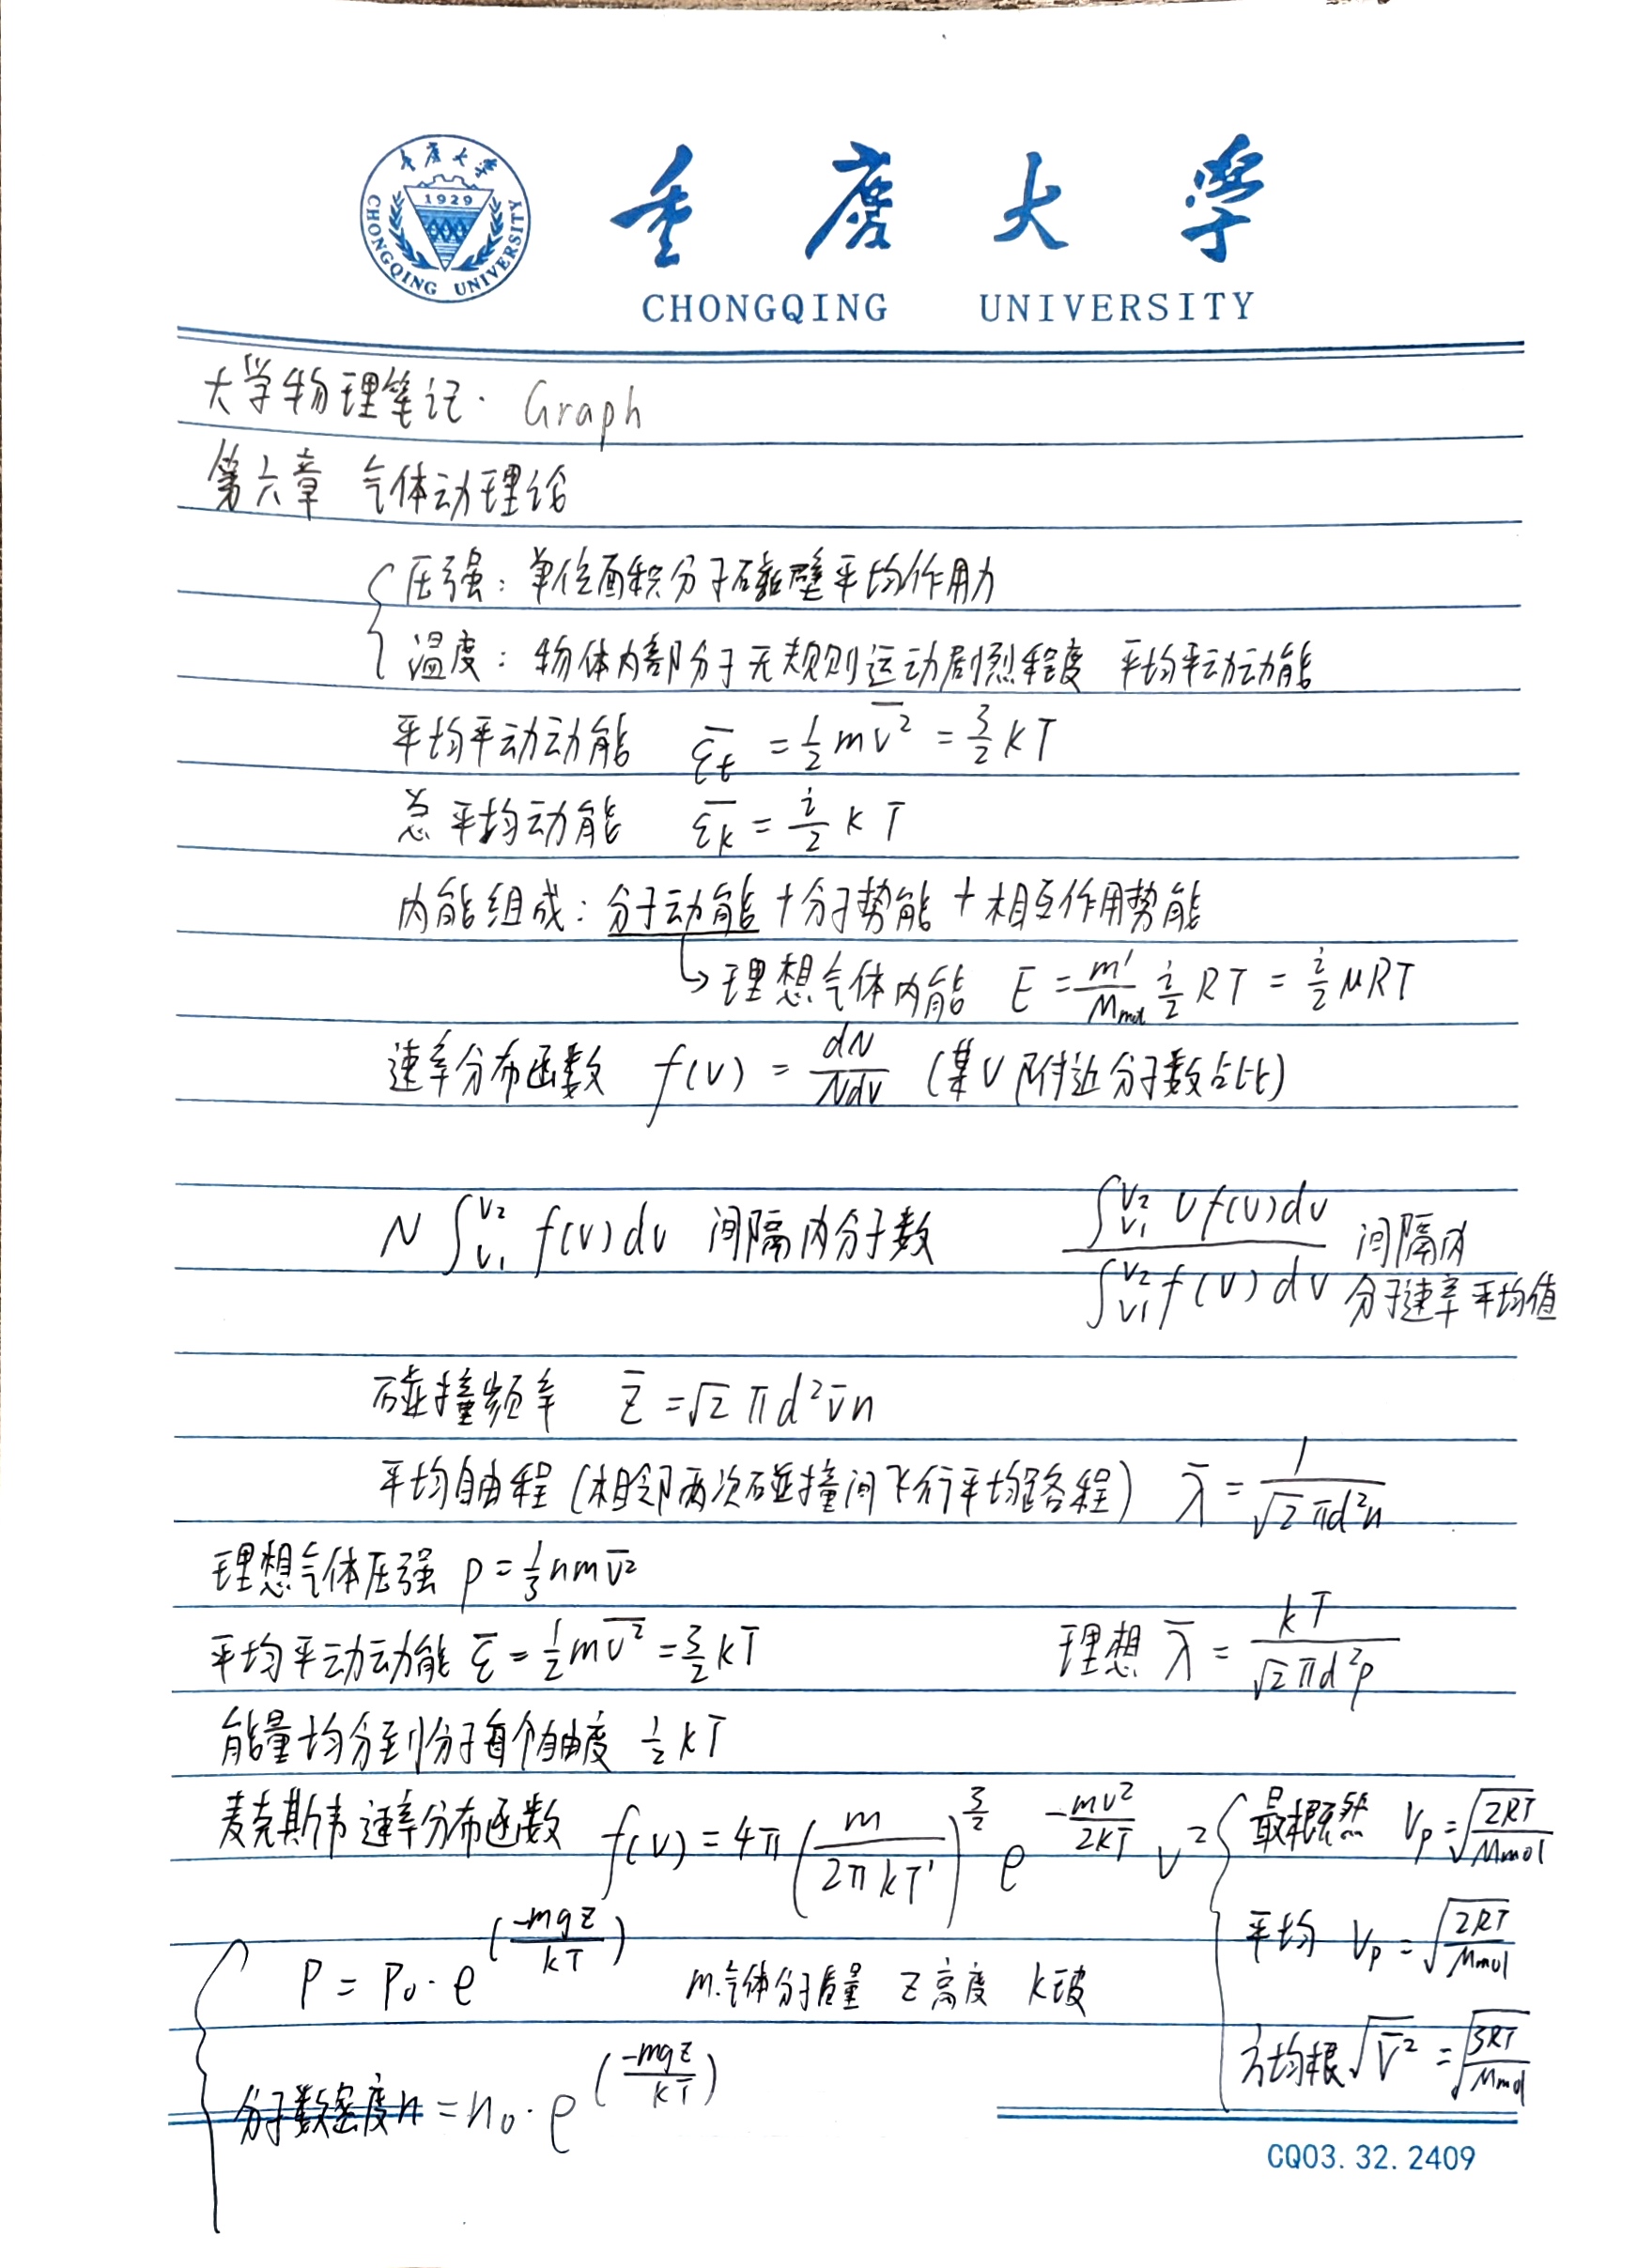 重庆大学
1929
CHONGQING UNIVERSITY
重庆大学
CHONGQING UNIVERSITY
大学物理笔记. Graph
第六章 气体动理论
压强: 单位面积分子碰壁平均作用力
温度: 物体内部分子无规则运动剧烈程度 平均平动动能
平均平动动能 \(\bar{\varepsilon_t} = \frac{1}{2} m \overline{v^2} = \frac{3}{2} kT\)
总平均动能 \(\bar{\varepsilon_k} = \frac{i}{2} kT\)
内能组成: 分子动能 + 分子势能 + 相互作用势能
↳ 理想气体内能 \(E = \frac{m'}{M_{mol}} \frac{i}{2} RT = \frac{i}{2} \mu RT\)
速率分布函数 \(f(v) = \frac{dN}{Ndv}\) (某v附近分子数占比)
\(N \int_{v_1}^{v_2} f(v) dv\) 间隔内分子数 \(\frac{\int_{v_1}^{v_2} v f(v) dv}{\int_{v_1}^{v_2} f(v) dv}\) 间隔内
分子速率平均值
碰撞频率 \(\bar{z} = \sqrt{2} \pi d^2 \bar{v} n\)
平均自由程 (相邻两次碰撞间飞行平均路程) \(\bar{\lambda} = \frac{1}{\sqrt{2} \pi d^2 n}\)
理想气体压强 \(p = \frac{1}{3} n m \overline{v^2}\)
平均平动动能 \(\bar{\varepsilon} = \frac{1}{2} m \overline{v^2} = \frac{3}{2} kT\) 理想 \(\bar{\lambda} = \frac{kT}{\sqrt{2} \pi d^2 p}\)
能量均分到分子每个自由度 \(\frac{1}{2} kT\)
麦克斯韦速率分布函数 \(f(v) = 4\pi \left(\frac{m}{2\pi kT}\right)^{\frac{3}{2}} e^{-\frac{mv^2}{2kT}} v^2\)
最概然 \(v_p = \sqrt{\frac{2RT}{M_{mol}}}\)
平均 \(v_p = \sqrt{\frac{2RT}{M_{mol}}}\)
方均根 \(\sqrt{\bar{v}^2} = \sqrt{\frac{3RT}{M_{mol}}}\)
\(P = P_0 \cdot e^{(\frac{-mgz}{kT})}\) m.气体分子质量 z高度 k玻
分子数密度 \(n = n_0 \cdot e^{(\frac{-mgz}{kT})}\)
CQ03.32.2409